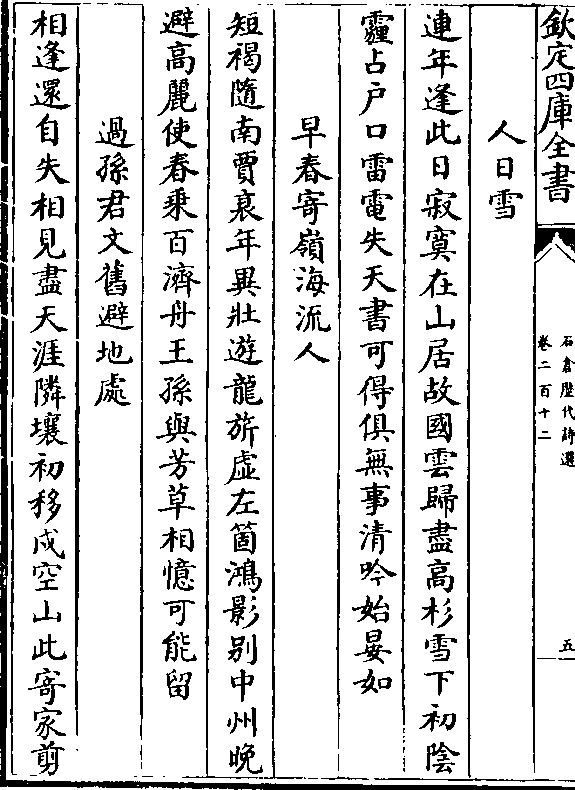 欽定四庫全書
石倉歷代詩選
卷二百十二
五
人日雪
連年逢此日寂寞在山居故國雲歸盡高杉雪下初陰
霾占戶口雷電失天書可得俱無事清吟始晏如
早春寄嶺海流人
短褐隨南賈衰年異壯遊龍旂虛左箇鴻影别中州晚
避高麗使春乘百濟舟王孫與芳草相憶可能留
過孫君文舊避地處
相逢還自失相見盡天涯隣壤初移戍空山此寄家剪